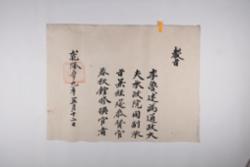 敎旨
李魯述爲通政大
夫承政院同副承
旨兼經筵參贊官
春秋館修撰官者
乾隆 九年 月十二日